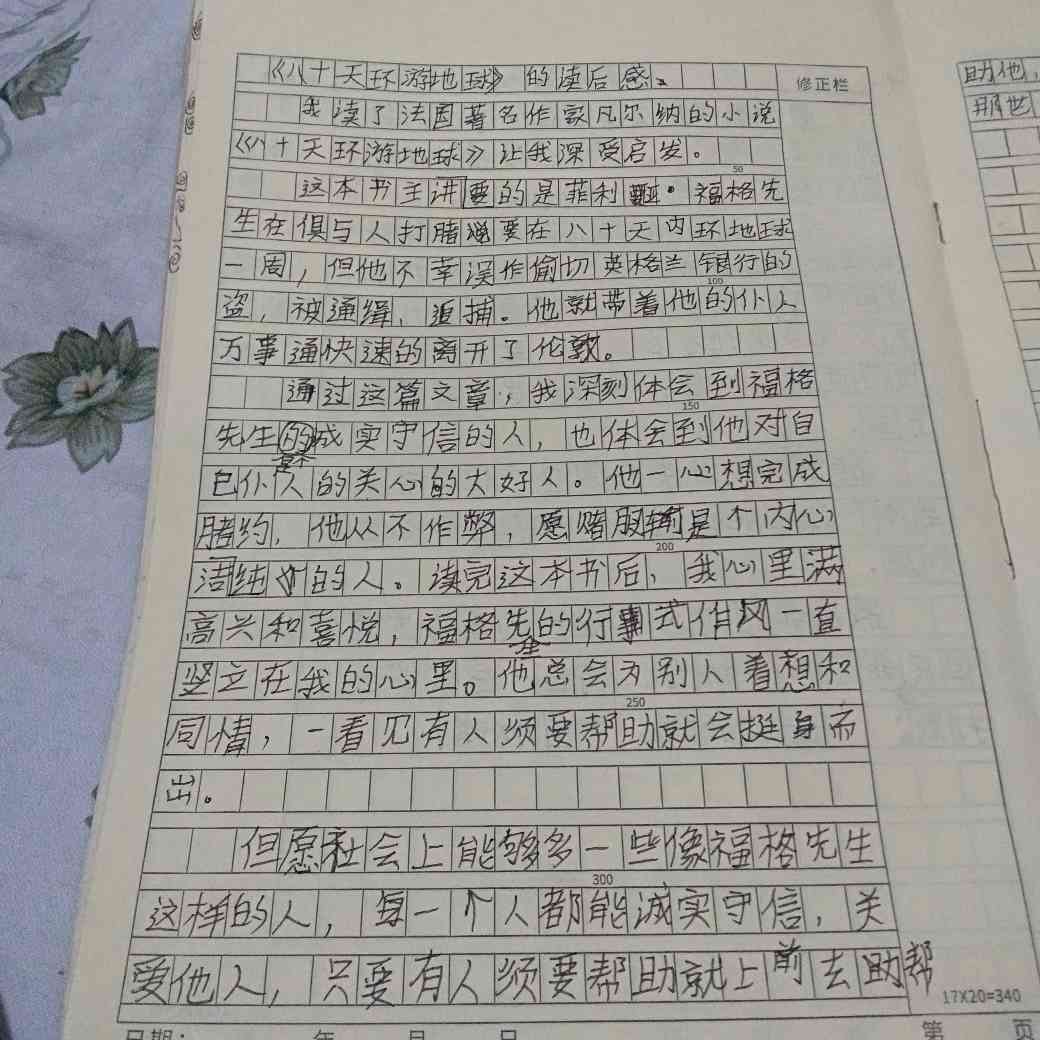 《八十天环游地球》的读后感。
修正栏
我读了法国著名作家凡尔纳的小说
《八十天环游地球》让我深受启发。
50
这本书主讲要的是菲利亚·福格先
生在俱与人打赌说要在八十天内环地球
一周，但他不幸误作偷切英格兰银行的
100
盗，被通缉、追捕。他就带着他的仆人
万事通快速的离开了伦敦。
通过这篇文章，我深刻体会到福格
150
先生的诚实守信的人，也体会到他对自
己仆人的关心的大好人。他一心想完成
赌约，他从不作弊，愿赌服输是个内心
200
洁纯的人。读完这本书后，我心里满
高兴和喜悦，福格先生的行事式作风一直
竖立在我的心里。他总会为别人着想和
250
同情，一看见有人须要帮助就会挺身而
出。
但愿社会上能够多一些像福格先生
300
这样的人，每一个人都能诚实守信，关
爱他人，只要有人须要帮助就上前去助帮
17X20=340
日期： 年 月 日
第 页
助他，
那世